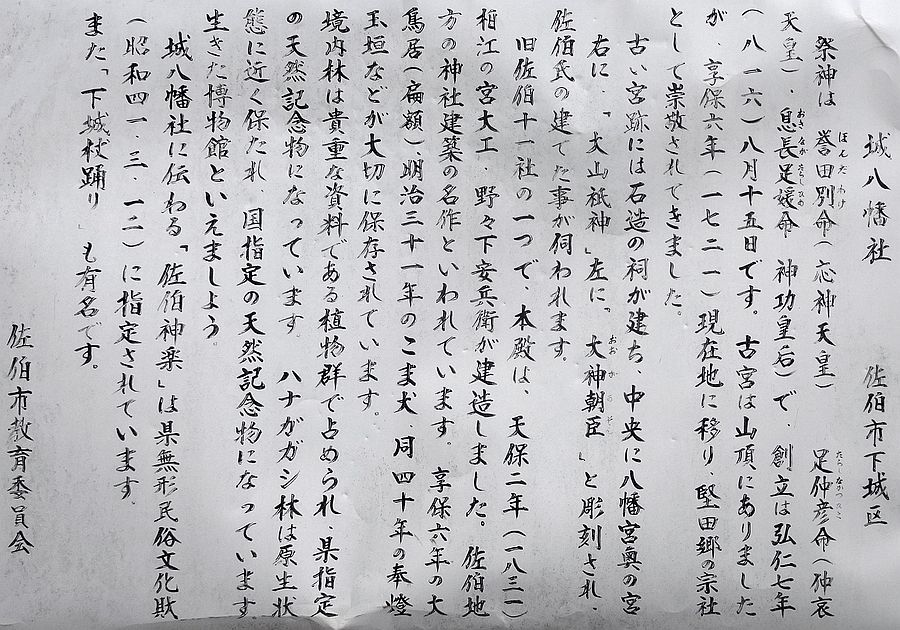 城八幡社 佐伯市下城区
祭神は 誉田別命(応神天皇) 足仲彦命(仲哀
天皇)、息長足媛命 神功皇后)で、創立は弘仁七年
(八一六)八月十五日です。古宮は山頂にありました
が、享保六年(一七二一)現在地に移り 堅田郷の宗社
として崇敬されてきました。
古い宮跡には石造の祠が建ち、中央に八幡宮奥の宮
右に「大山祗神」左に、大神朝臣」と彫刻され、
佐伯氏の建てた事が伺われます。
旧佐伯十一社の一つで、本殿は、天保二年(一八三一)
柏江の宮大工、野々下安兵衛が建造しました。佐伯地
方の神社建築の名作といわれています。享保六年の大
鳥居(扁額)、明治三十一年のこま犬、同四十年の奉燈
玉垣などが大切に保存されています。
境内林は貴重な資料である植物群で占められ、県指定
の天然記念物になっています。ハナガガシ林は原生状
態に近く保たれ、国指定の天然記念物になっています
生きた博物館といえましよう。
城八幡社に伝わる「佐伯神楽」は県無形民俗文化財
(昭和四一、三、一二)に指定されています。
また「下城杖踊り」も有名です。
佐伯市教育委員会